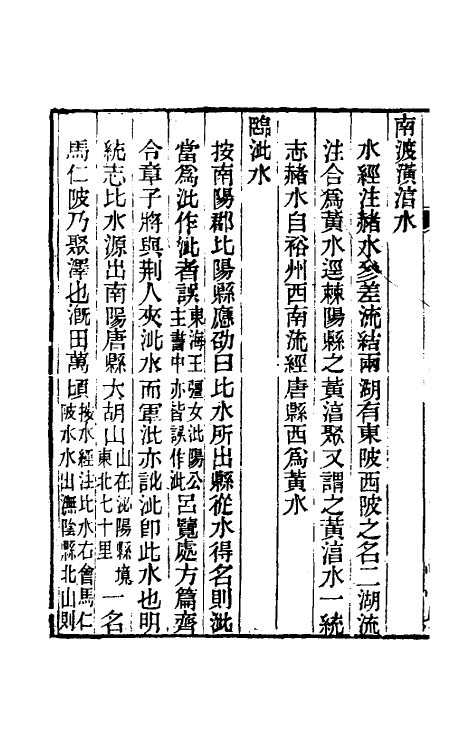 南渡潢淯水
水經注赭水參差流結兩湖有東陂西陂之名二湖流
注合爲黃水逕棘陽縣之黃淯聚又謂之黃淯水一統
志赭水自裕州西南流經唐縣西爲黃水
臨沘水
按南陽郡比陽縣應劭曰比水所出縣從水得名則沘
當爲沘作泚者誤東海王彊女沘陽公主書中亦皆誤作泚呂覽處方篇齊
令章子將與荆人夾沘水而軍沘亦訛泚卽此水也明
統志比水源出南陽唐縣大胡山山在泌陽縣境東北七十里一名
馬仁陂乃聚澤也漑田萬頃按水經注比水右會馬仁陂水水出潕陰縣北山則